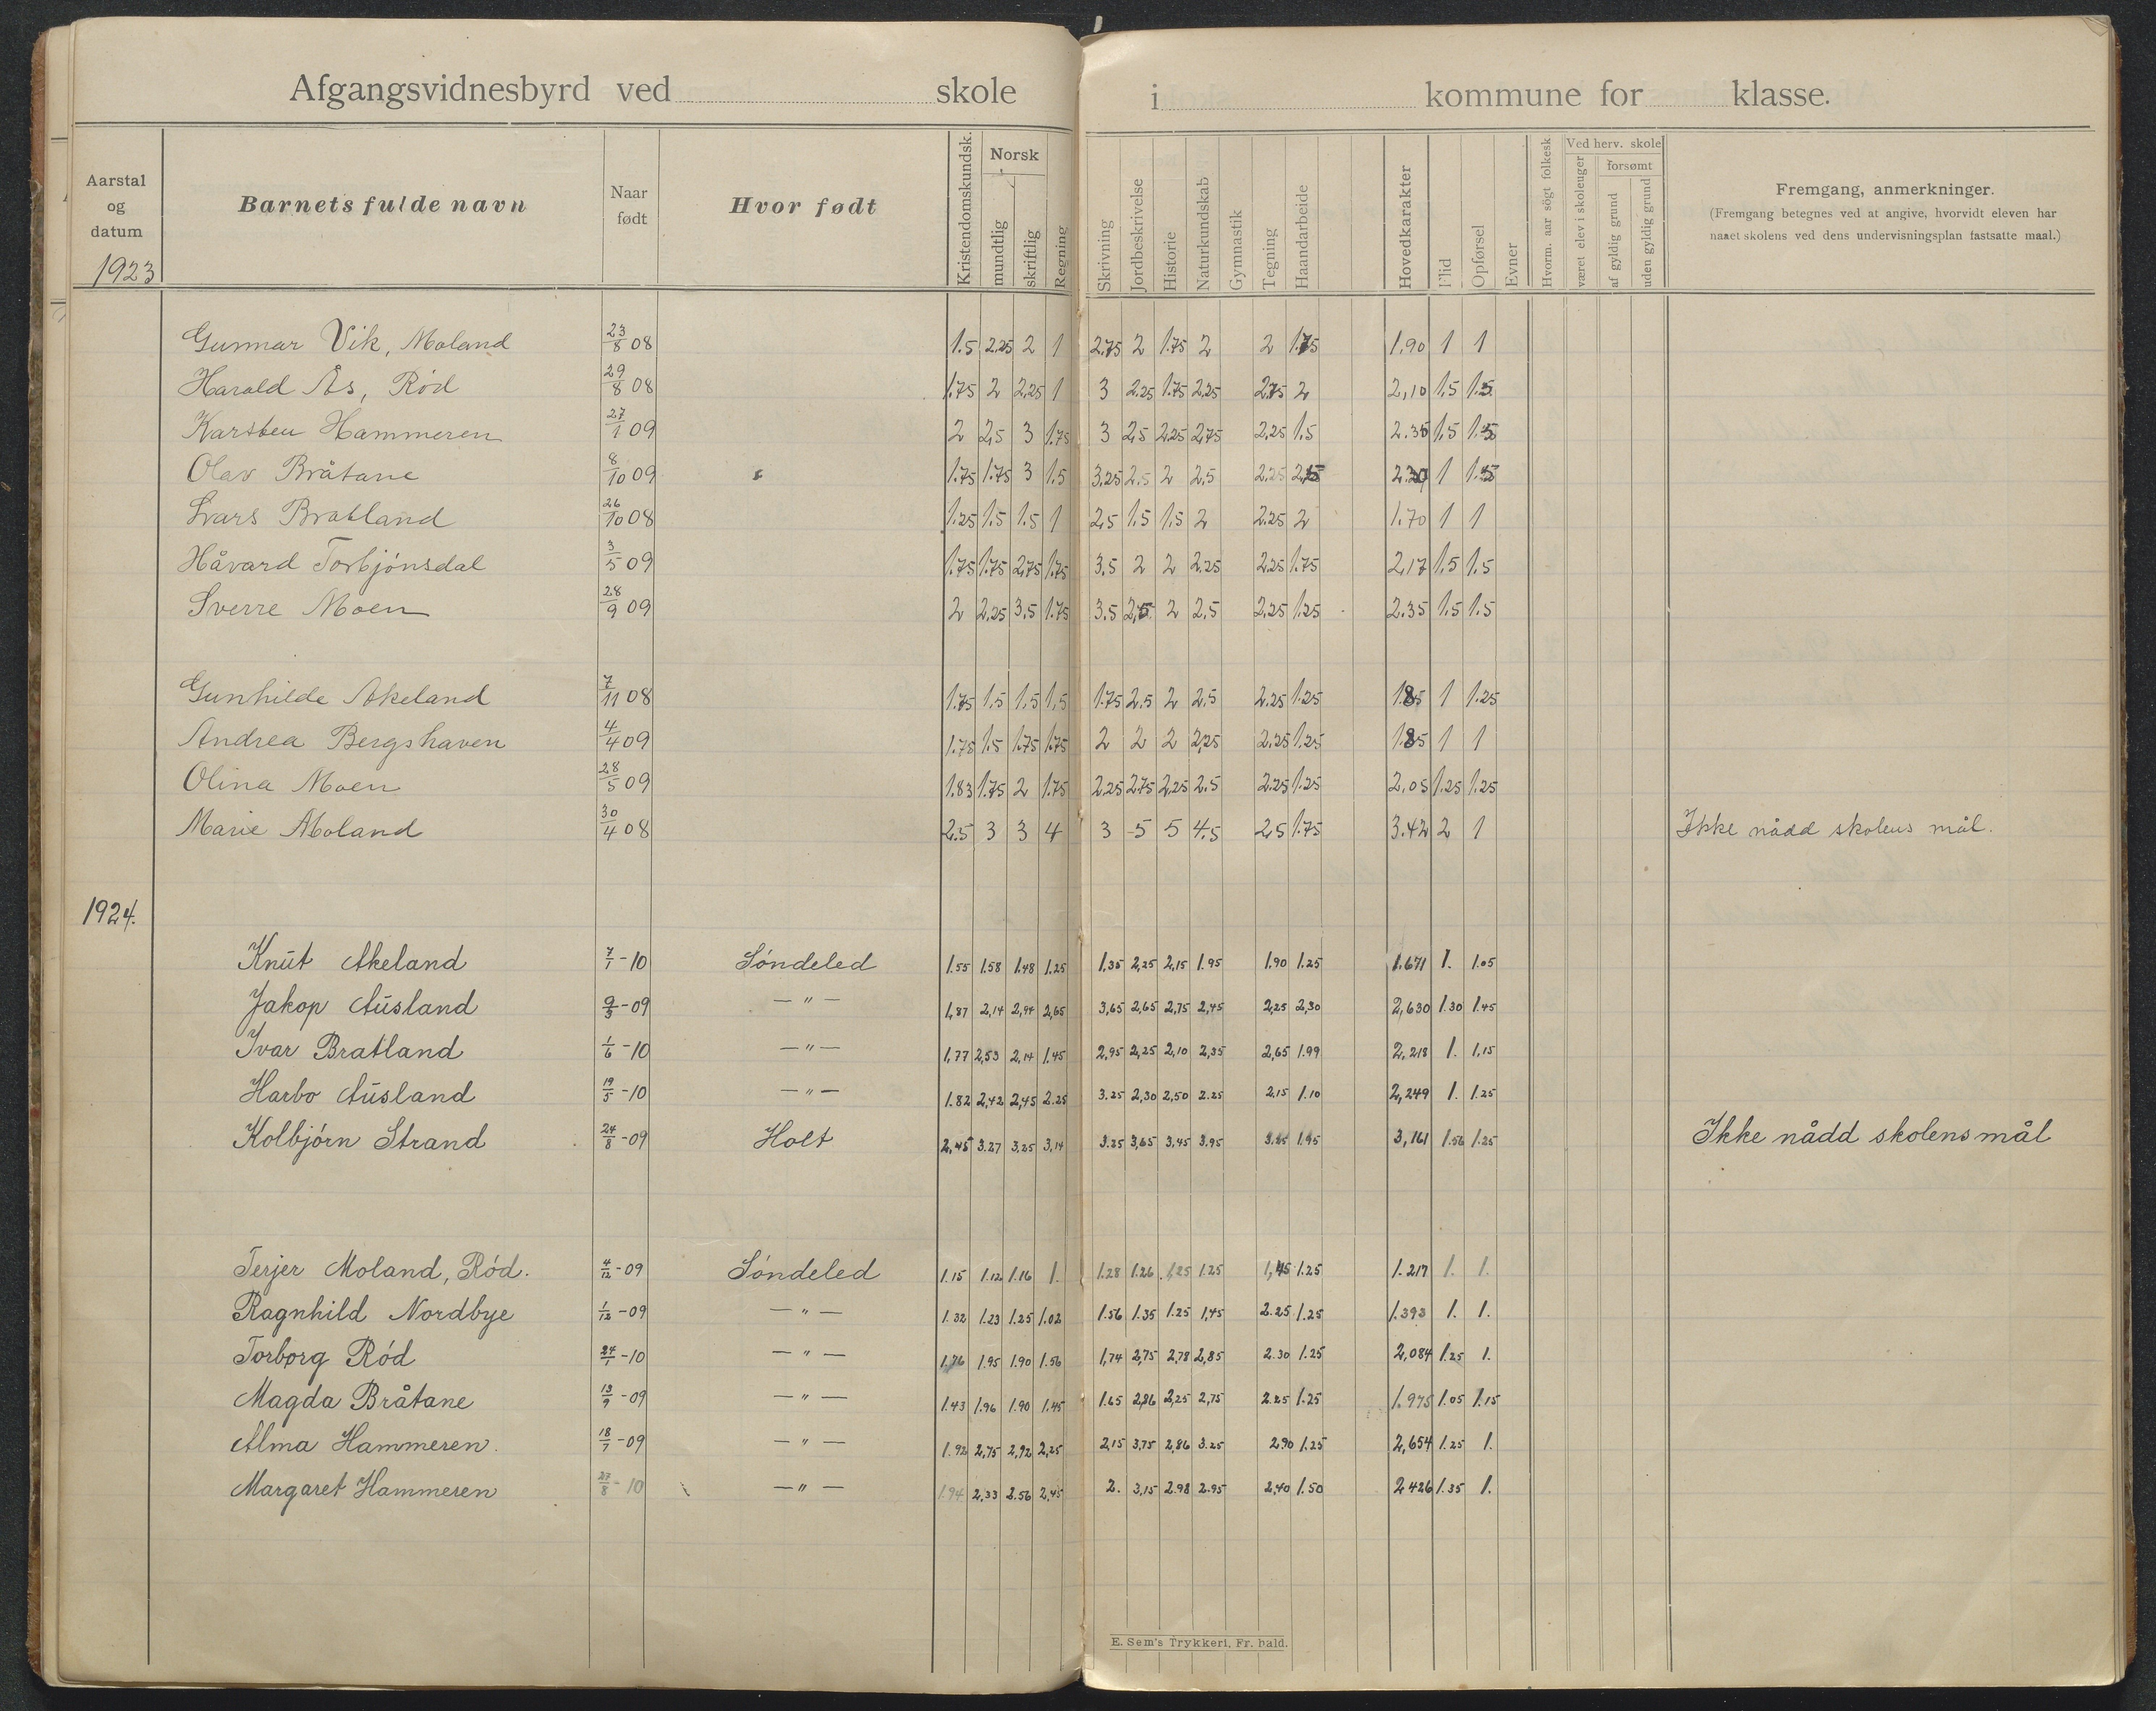 Afgangsvidnesbyrd ved skole i kommune for klasse.
Aarstal og datum
Barnets fulde navn
Naar født
Hvor født
Kristendomskundsk.
Norsk
mundtlig
skriftlig
Regning
Skrivning
Jordbeskrivelse
Historie
Naturkundskab
Gymnastik
Tegning
Haandarbeide
Hovedkarakter
Flid
Opførsel
Evner
Hvorm. aar sögt folkesk
Ved herv. skole
været elev i skoleuger
forsømt
af gyldig grund
uden gyldig grund
Fremgang, anmerkninger.
(Fremgang betegnes ved at angive, hvorvidt eleven har
naaet skolens ved dens undervisningsplan fastsatte maal.)
1923
Gunnar Vik, Moland 23/8 08 1.5 2.25 2 1 2.75 2 1.75 2 2 1.75 1.90 1 1
Harald Ås, Rød 29/8 08 1.75 2 2.25 1 3 2.25 1.75 2.25 2.75 2 2,10 1,5 1.5
Karsten Hammeren 27/1 09 2 2,5 3 1.75 3 2,5 2.25 2,75 2,25 1.5 2.35 1,5 1.5
Olav Bråtane 8/10 09 1.75 1.75 3 1.5 3.25 2.5 2 2,5 2.25 2.5 2.20 1 1.5
Lars Bratland 26/10 08 1.25 1.5 1.5 1 2,5 1.5 1,5 2 2.25 2 1.70 1 1
Håvard Torbjönsdal 3/5 09 1.75 1.75 2,75 1.75 3.5 2 2 2.25 2.25 1.75 2,17 1,5 1.5
Sverre Moen 28/9 09 2 2,25 3.5 1.75 3.5 2,5 2 2,5 2,25 1.25 2.35 1.5 1.5
Gunhilde Akeland 7/11 08 1.75 1.5 1,5 1,5 1.75 2.5 2 2,5 2.25 1.25 1.85 1 1.25
Andrea Bergshaven 4/4 09 1.75 1.5 1.75 1.75 2 2 2 2,25 2.25 1.25 1.85 1 1
Olina Moen 28/5 09 1.83 1.75 2 1.75 2.25 2.75 2,25 2.5 2.25 1.25 2,05 1.25 1.25
Marie Moland 30/4 08 2.5 3 3 4 3 5 5 4.5 2,5 1.75 3.42 2 1 Ikke nådd skolens mål.
1924.
Knut Akeland 7/1-10 Söndeled 1.55 1.58 1.48 1.25 1.35 2,25 2,15 1.95 1.90 1.25 1.671 1. 1.05
Jakop Ausland 9/3-09 — " — 1,87 2,14 2,94 2,65 3,65 2,65 2,75 2,45 2,25 2,30 2,630 1.30 1.45
Ivar Bratland 1/6-10 — " — 1,77 2,53 2,14 1.45 2,95 2,25 2,10 2,35 2,65 1.99 2,218 1. 1,15
Harbo Ausland 19/5-10 — " — 1.82 2,42 2,45 2.25 3.25 2,30 2,50 2.25 2,15 1.10 2,249 1. 1.25
Kolbjörn Strand 24/8-09 Holt 2,45 3.27 3,25 3,14 3.25 3,65 3,45 3.95 3,25 1.95 3,161 1.56 1.25 Ikke nådd skolens mål
Terjer Moland, Röd. 4/12-09 Söndeled 1.15 1.12 1.16 1. 1.28 1.26 1,25 1.25 1,45 1.25 1.217 1. 1.
Ragnhild Nordbye 1/12-09 — " — 1.32 1.23 1.25 1.02 1.56 1.35 1.25 1,45 2.25 1.25 1.393 1. 1.
Torborg Röd 24/1-10 — " — 1,76 1.95 1.90 1.56 1,74 2,75 2,78 2,85 2.30 1.25 2,084 1.25 1.
Magda Bråtane 13/9-09 — " — 1.43 1.96 1.90 1.45 1.65 2,86 2,25 2,75 2.25 1.25 1.975 1.05 1.15
Alma Hammeren. 18/7-09 — " — 1.92 2,75 2,92 2,25 2,15 3,75 2,86 3.25 2.90 1.25 2,654 1.25 1.
Margaret Hammeren 27/8-10 — " — 1.94 2,33 2.56 2,45 2. 3,15 2.98 2.95 2,40 1.50 2426 1.35 1.
E. Sem's Trykkeri, Fr. hald.